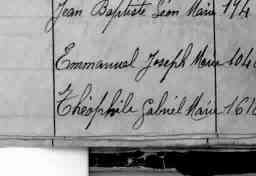 Jean Baptiste Léon Marie 194
Emmanuel Joseph Marie 104
Théophile Gabriel Marie 161